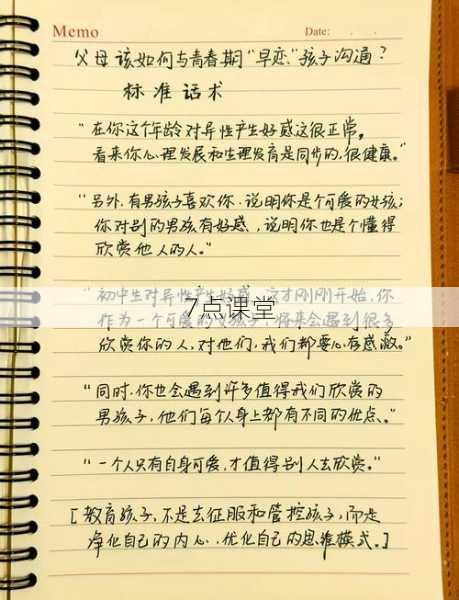 Memo
Date:
父母该如何与青春期"早恋"孩子沟通?
标准话术
"在你这个年龄对异性产生好感这很正常。
看来你心理发展和生理发育是同步的,很健康。"
"另外,有男孩子喜欢你,说明你是个可爱的女孩;
你对别的男孩有好感,说明你也是个懂得
欣赏他人的人。"
"初中生对异性产生好感,这才刚刚开始,你
7点课堂
作为一个可爱的女孩子,将来会遇到很多
欣赏你的人,对他们,我们都要心存感激。"
"同时,你也会遇到许多值得我们欣赏的
男孩子,他们每个人身上都有不同的优点。"
"一个人只有自身可爱,才值得别人去欣赏。"
[教育孩子,不是去征服和管控孩子,而是
净化自己的内心,优化自己的思维模式。]